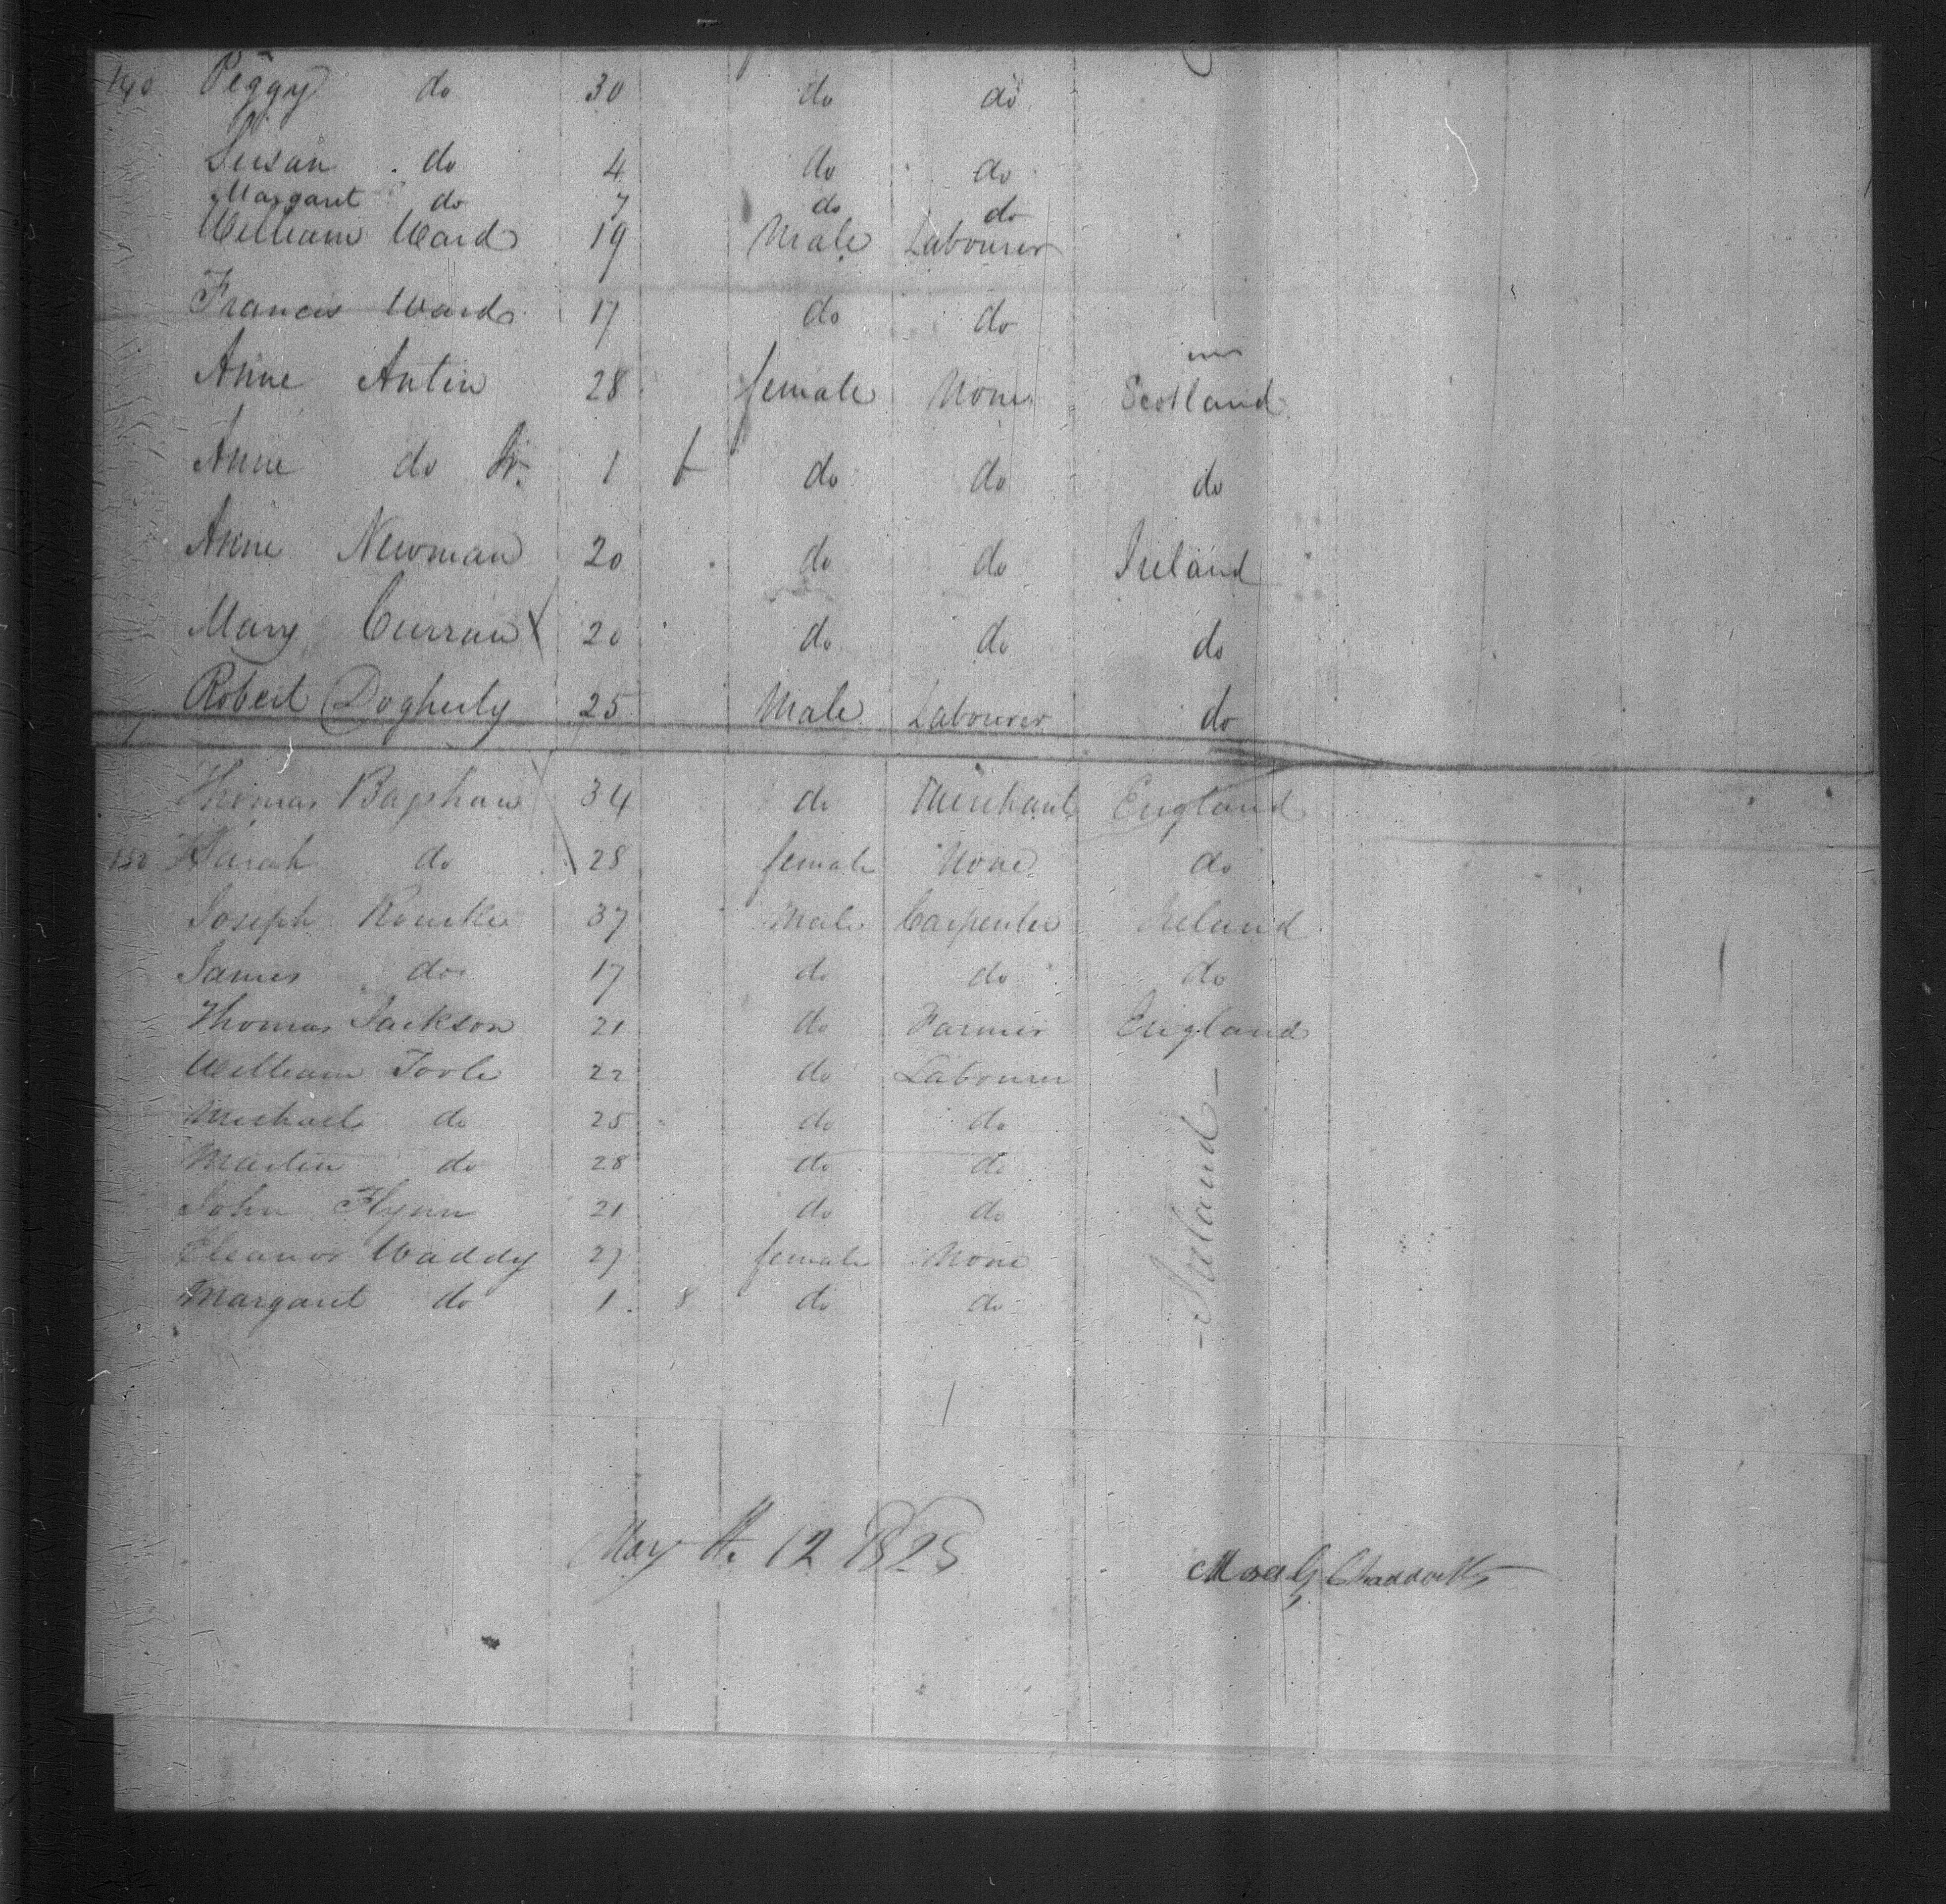 140 Peggy do 30 do do
Susan do 4 do do
Margaret do 7 do do
William Ward 19 Male Labourer
Francis Ward 17 do do
Anne Antin 28 female None Scotland
Anne do Jr. 1 do do do
Anne Newman 20 do do Ireland
Mary Curran 20 do do do
Robert Dogherty 25 Male Labourer do
Thomas Bagshaw 34 do Merchant England
150 Sarah do 28 female None do
Joseph Rourke 37 Male Carpenter Ireland
James do 17 do do do
Thomas Jackson 21 do Farmer England
William Toole 22 do Labourer
Michael do 25 do do
Martin do 28 do do
John Flynn 21 do do
Eleanor Waddy 27 female None
Margaret do 1 8 do do
- Ireland -
May th. 12 1825